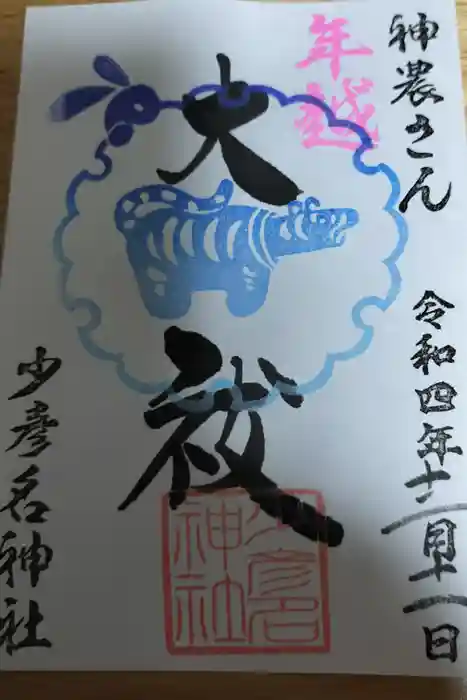 神農さん
令和四年十二月十一日
年越
大祓
少彦名神社
少彦名
神社